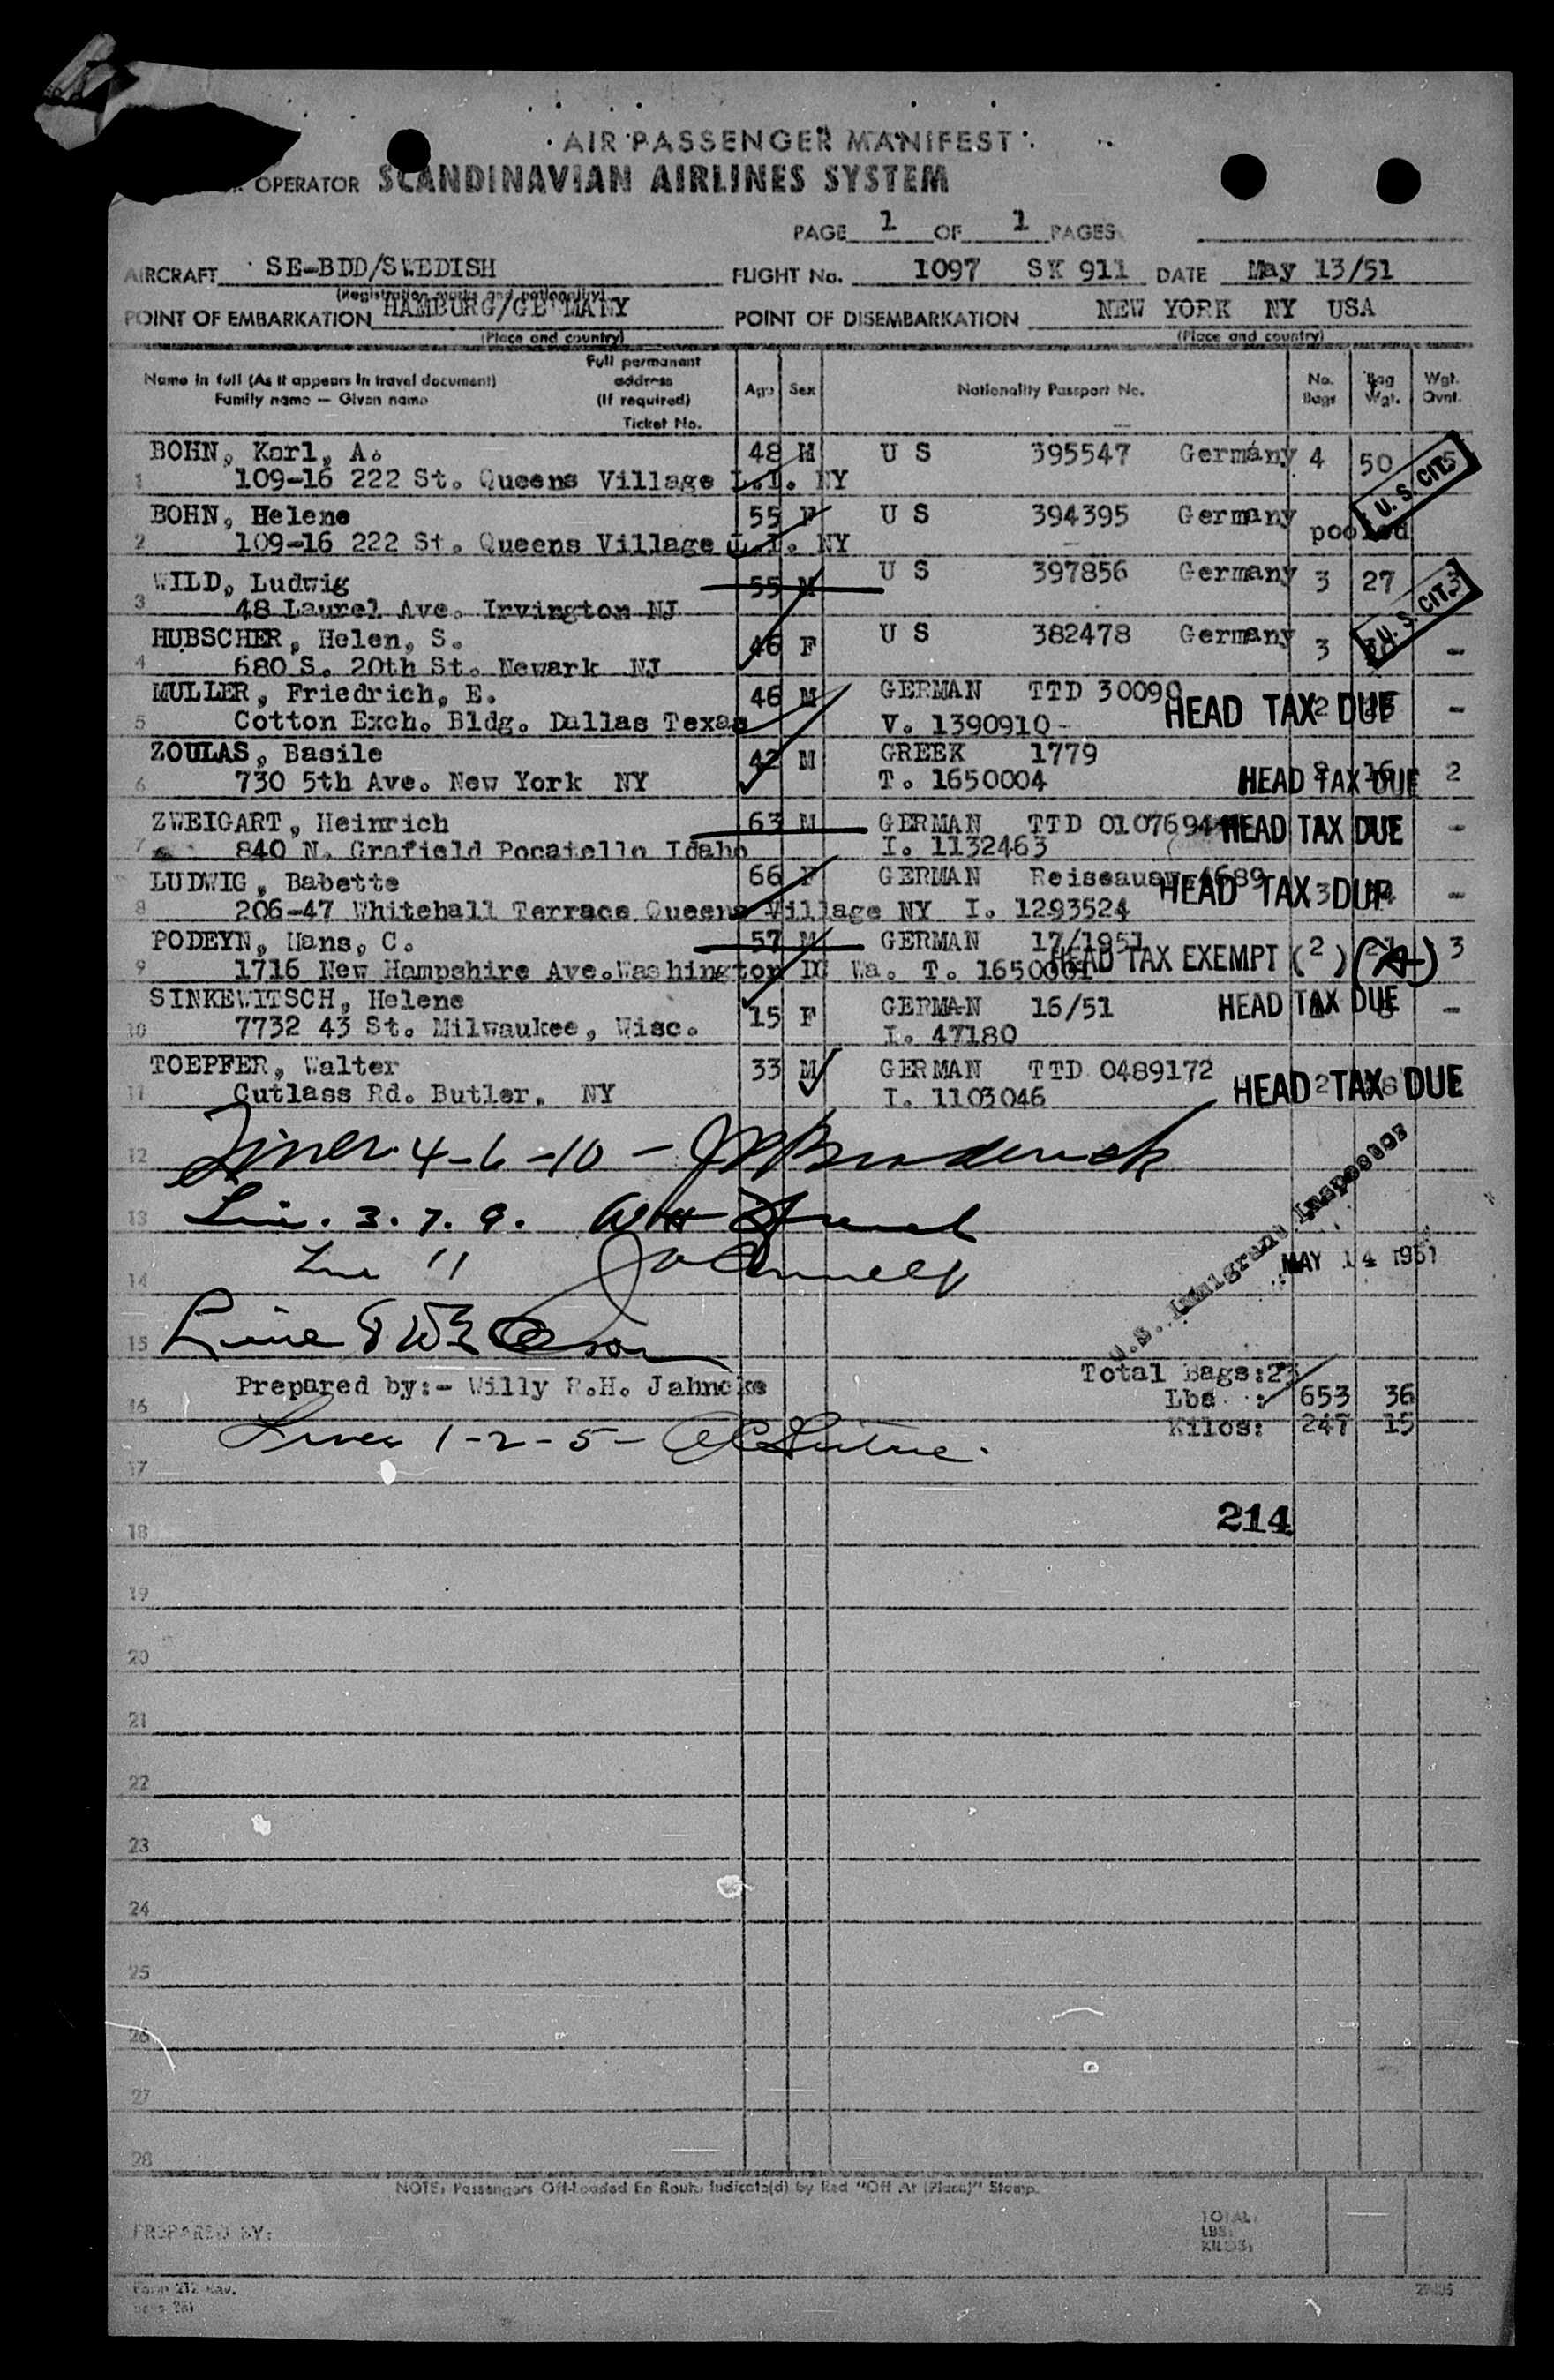 AIR PASSENGER MANIFEST
OPERATOR SCANDINAVIAN AIRLINES SYSTEM
PAGE 1 OF 1 PAGES
AIRCRAFT SE-BDD/SWEDISH FLIGHT No. 1097 SK 911 DATE May 13/51
(Registration marks and nationality)
POINT OF EMBARKATION HAMBURG/GERMANY POINT OF DISEMBARKATION NEW YORK NY USA
(Place and country) (Place and country)
Name in full (As it appears in travel document) Family name — Given name Full permanent address (If required) Ticket No. Age Sex Nationality Passport No. No. Bags Bag Wgt. Wgt. Ovnt.
BOHN, Karl, A. 48 M U S 395547 Germany 4 50
1 109-16 222 St. Queens Village L.I. NY U. S. CIT.
BOHN, Helene 55 F U S 394395 Germany pooled
2 109-16 222 St. Queens Village L.I. NY
WILD, Ludwig 55 M U S 397856 Germany 3 27 3
3 48 Laurel Ave. Irvington NJ U. S. CIT.
HUBSCHER, Helen, S. 46 F U S 382478 Germany 3 -
4 680 S. 20th St. Newark NJ
MULLER, Friedrich, E. 46 M GERMAN TTD 30090 HEAD TAX DUE 2 -
5 Cotton Exch. Bldg. Dallas Texas V. 1390910-
ZOULAS, Basile 42 M GREEK 1779
6 730 5th Ave. New York NY T. 1650004 HEAD TAX DUE 16 2
ZWEIGART, Heinrich 63 M GERMAN TTD 0107694 HEAD TAX DUE -
7 840 N. Grafield Pocatello Idaho I. 1132463
LUDWIG, Babette 66 F GERMAN Reiseausw. 4689 HEAD TAX DUE 3 -
8 206-47 Whitehall Terrace Queens Village NY I. 1293524
PODEYN, Hans, C. 57 M GERMAN 17/1951 HEAD TAX EXEMPT (2) 3
9 1716 New Hampshire Ave.Washington DC Wa. T. 1650001
SINKEWITSCH, Helene 15 F GERMAN 16/51 HEAD TAX DUE -
10 7732 43 St. Milwaukee, Wisc. I. 47180
TOEPFER, Walter 33 M GERMAN TTD 0489172 HEAD TAX DUE 2
11 Cutlass Rd. Butler. NY I. 1103046
12 Lines 4-6-10 -
13 Lin. 3. 7. 9.
14 Line 11
U.S. Immigrant Inspector
MAY 14 1951
15 Line 8
Prepared by:- Willy R.H. Jahncke Total Bags:23
16 Lbs : 653 36
Kilos: 247 15
Lines 1-2-5-
17
214
18
19
20
21
22
23
24
25
26
27
28
NOTE: Passengers Off-Loaded En Route Indicate(d) by Red "Off At (Place)" Stamp.
PREPARED BY:
TOTAL:
LBS:
KILOS:
Form 212 Rev.